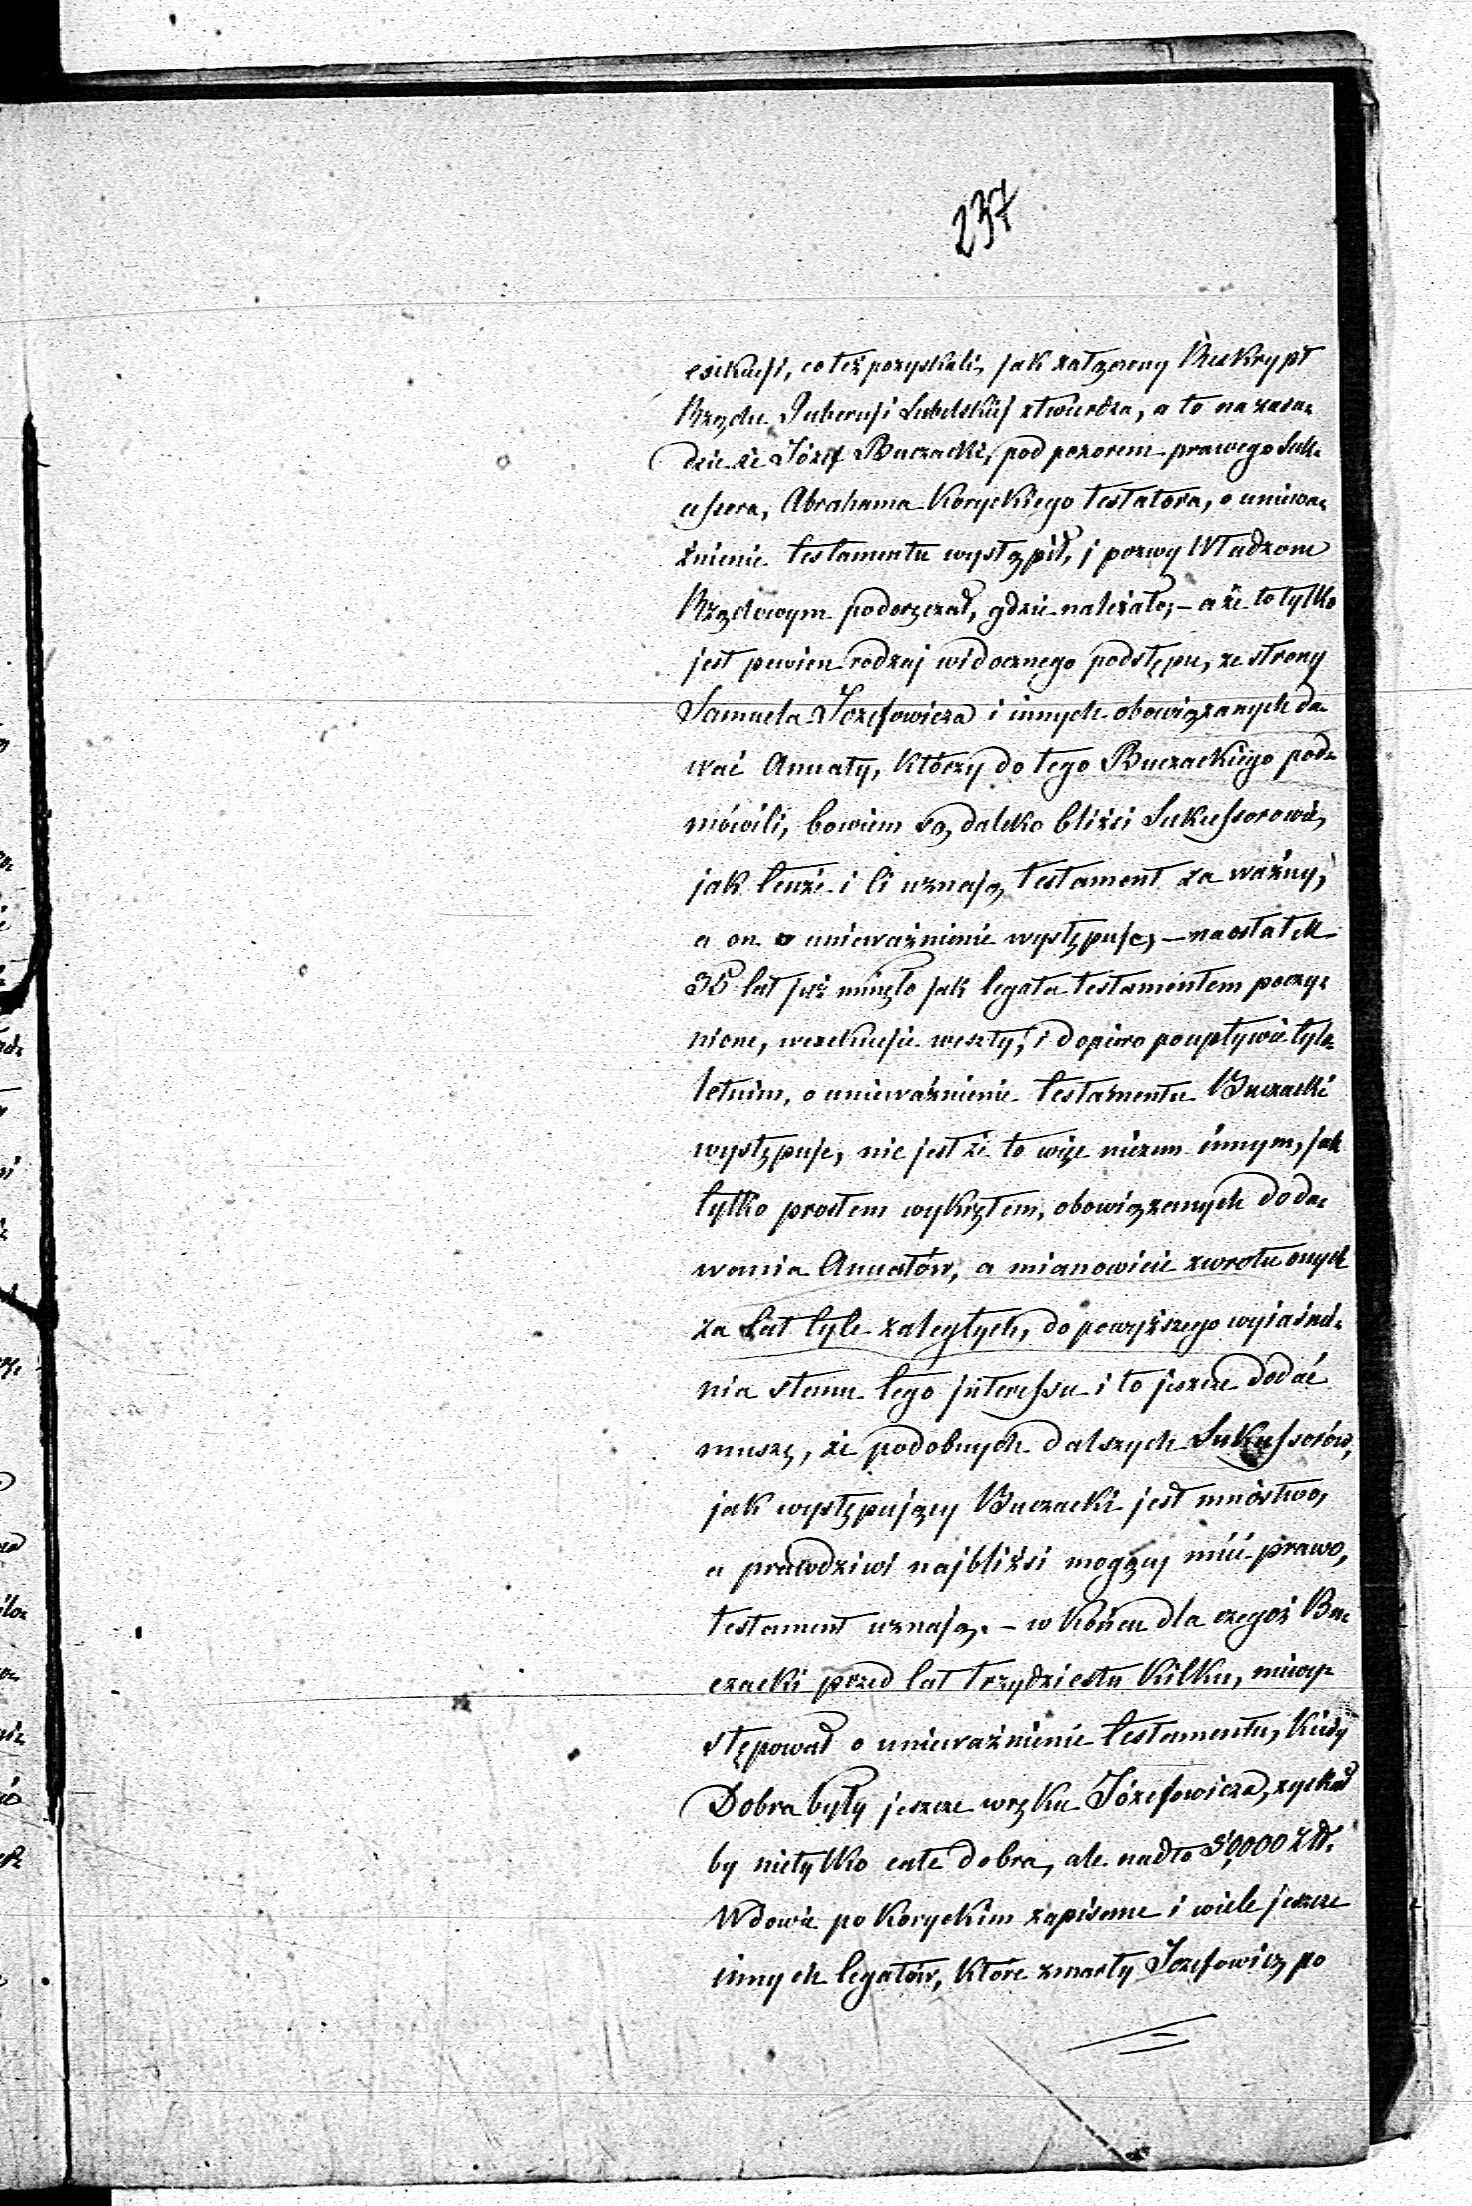 237
co też pozyskali, jak załączony Reskrypt
Rządu Gubernji Lubelskiej stwierdza, a to na zasa„
dzie że Józef Buczacki, pod pozorem prawego Suk„
cessora, Abrahama Koryckiego testatora, o uniewa„
żnienie testamentu wystąpił, i pozwy Władzom
Rządowym podoręczał, gdzie należało; – a że to tylko
jest pewien rodzaj widocznego podstępu, ze strony
Samuela Jozefowicza i innych obowiązanych da„
wać Annaty, którzy do tego Buczackiego pod„
mówili, bowiem są daleko bliżsi Sukcessorowie,
jak tenże i Ci uznają testament za ważny,
a on o unieważnienie występuje, – na ostatek
35 lat już minęło jak legata testamentem poczy„
nione, w exekucje weszły, i dopiero po upływie tylo„
letnim, o unieważnienie testamentu Buczacki
występuje, nie jest że to więc niczem innym, jak
tylko prostem wykrętem, obowiązanych do da„
wania Annatów, a mianowicie zwrotu onych
za lat tyle zaległych, do powyższego wyiaśnie„
nia stanu tego jnteressu i to jeszcze dodać
muszę, że podobnych dalszych Sukcessorów,
jak występujący Buczacki jest mnóstwo,
a prawdziwi najbliżsi mogący mieć prawo,
testament uznają. – w końcu dla czegoż Bu„
czacki przed lat trzydziestu kilku, niewy„
stępował o unieważnienie testamentu, kiedy
Dobra były jeszcze w ręku Józefowicza, zyskał
by nietylko całe dobra, ale nadto
Wdowie po Koryckim zapisane i wiele jeszcze
innych legatów, które zmarły Jozefowicz po